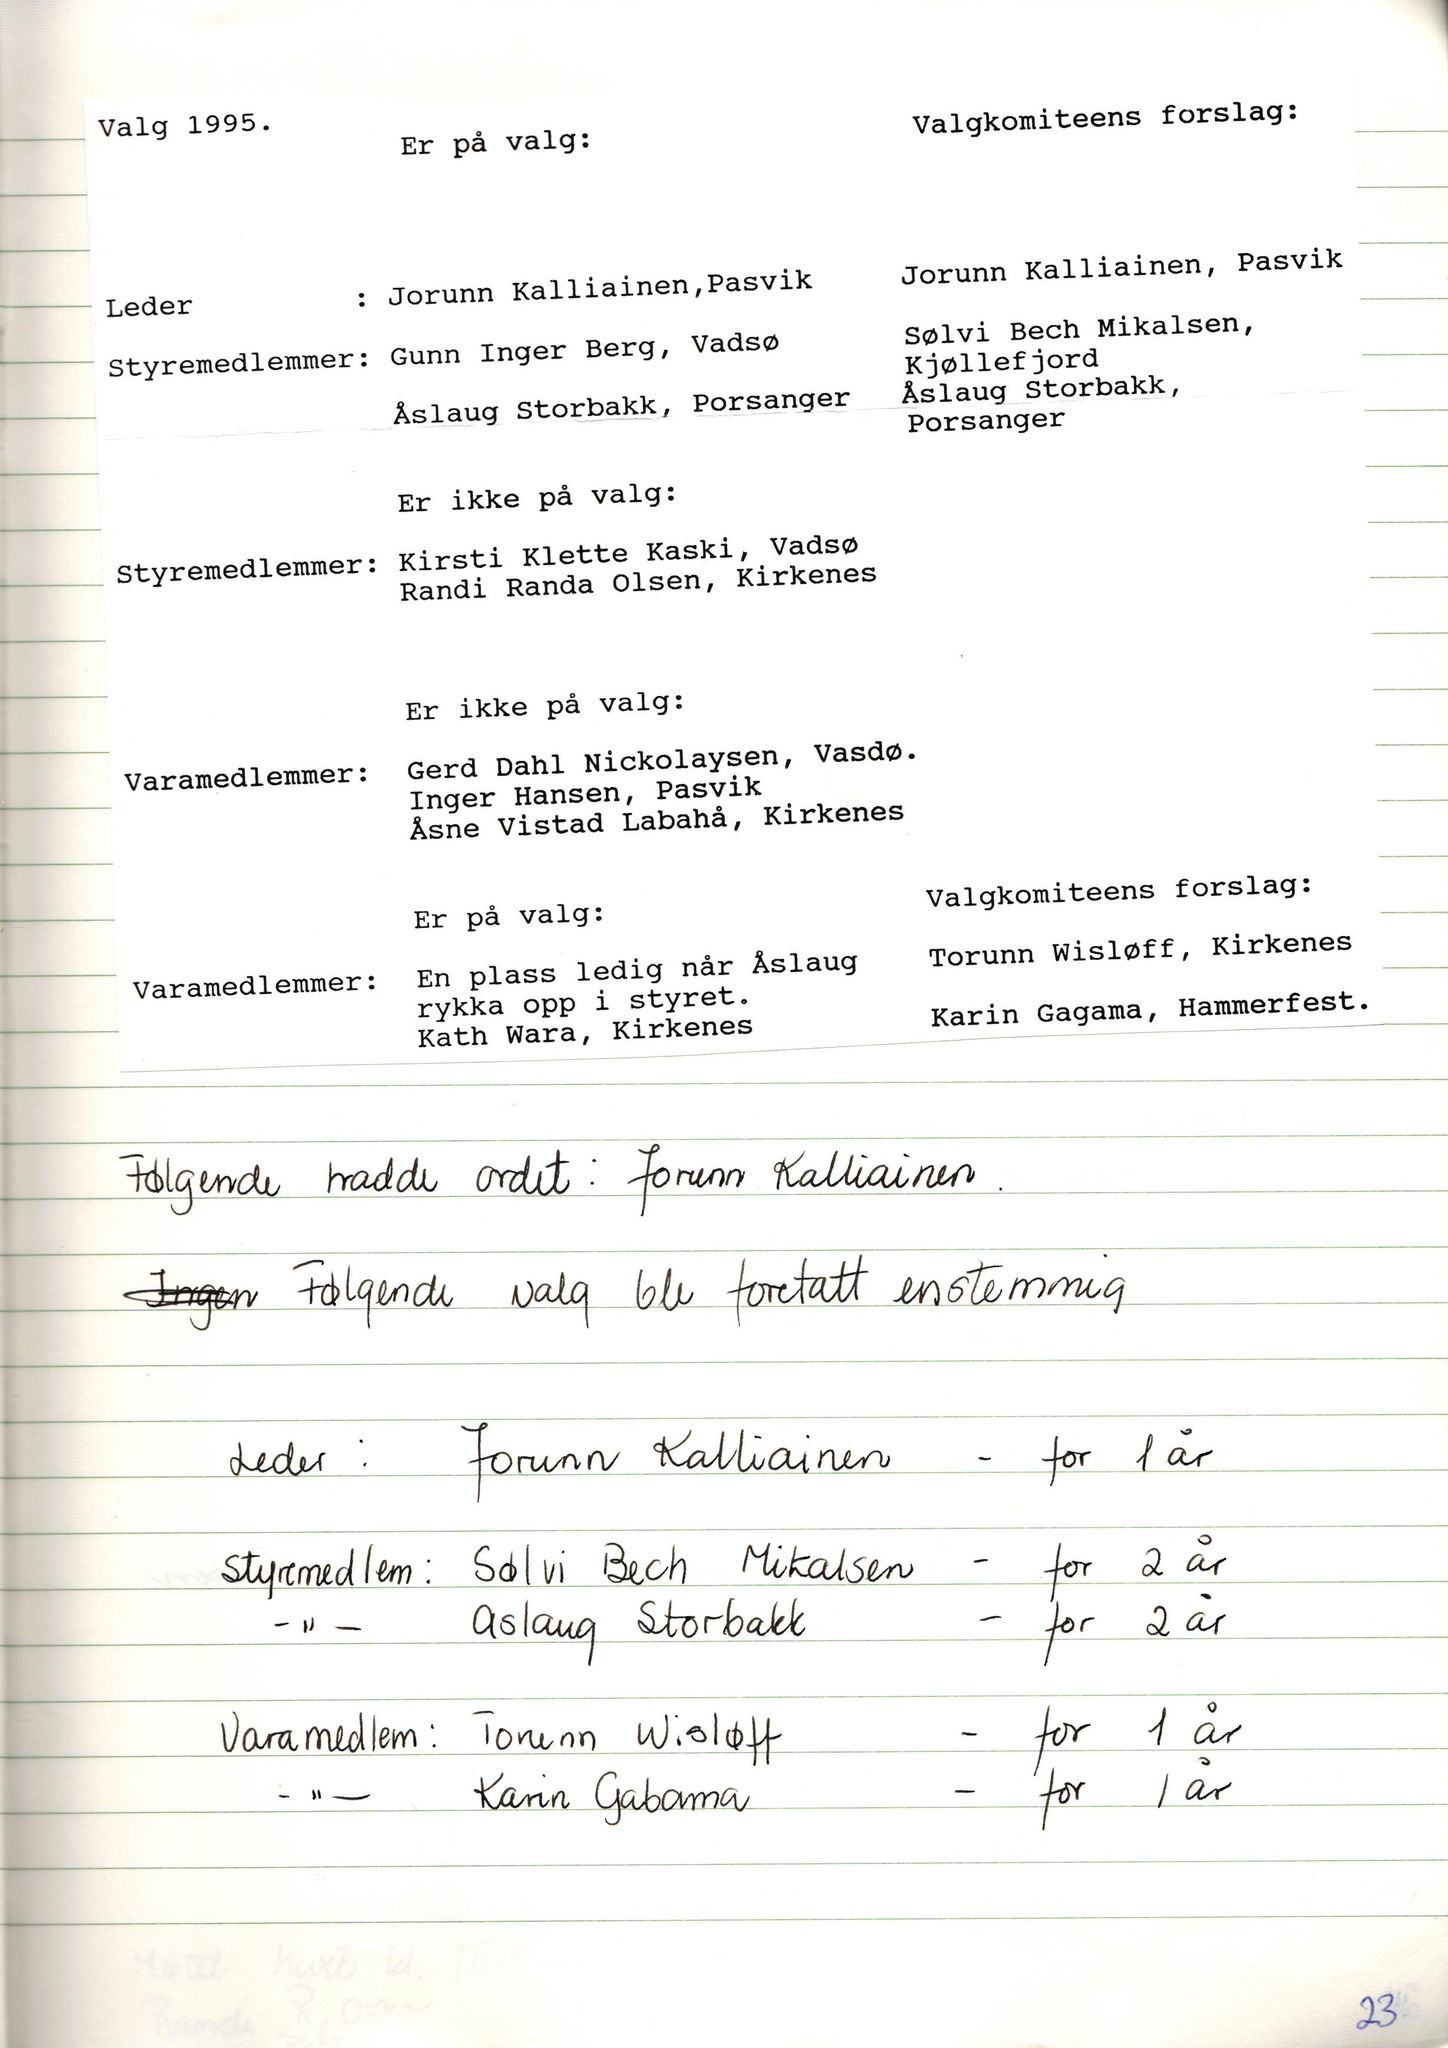 Valg 1995. Er på valg: Valgkomiteens forslag:
Leder : Jorunn Kalliainen,Pasvik Jorunn Kalliainen, Pasvik
Styremedlemmer: Gunn Inger Berg, Vadsø Sølvi Bech Mikalsen,
Kjøllefjord
Åslaug Storbakk, Porsanger Åslaug Storbakk,
Porsanger
Er ikke på valg:
Styremedlemmer: Kirsti Klette Kaski, Vadsø
Randi Randa Olsen, Kirkenes
Er ikke på valg:
Varamedlemmer: Gerd Dahl Nickolaysen, Vasdø.
Inger Hansen, Pasvik
Åsne Vistad Labahå, Kirkenes
Er på valg: Valgkomiteens forslag:
Varamedlemmer: En plass ledig når Åslaug Torunn Wisløff, Kirkenes
rykka opp i styret.
Kath Wara, Kirkenes Karin Gagama, Hammerfest.
Følgende hadde ordet: Jorunn Kalliainen.
Ingen Følgende valg ble foretatt enstemmig
Leder : Jorunn Kalliainen - for 1 år
Styremedlem: Sølvi Bech Mikalsen - for 2 år
-"- Aslaug Storbakk - for 2 år
Varamedlem: Torunn Wisløff - for 1 år
-"- Karin Gabama - for 1 år
23